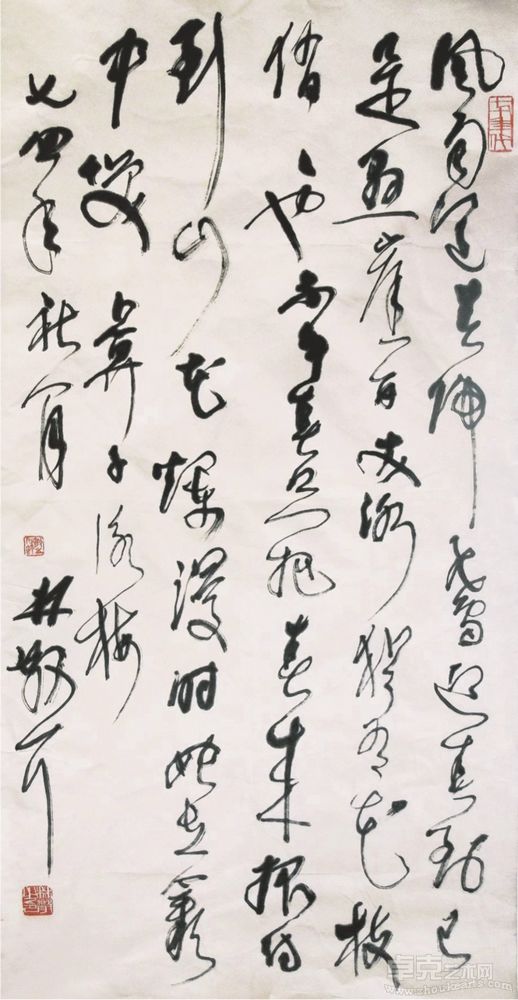 风雨送春归 飞雪迎春到 已
是悬崖百丈冰 犹有花枝
俏 俏也不争春 只把春来报 待
到山花烂漫时 她在丛
中笑 卜算子 咏梅
七四年秋月 林散之
卓克艺术网
www.zhuokearts.com